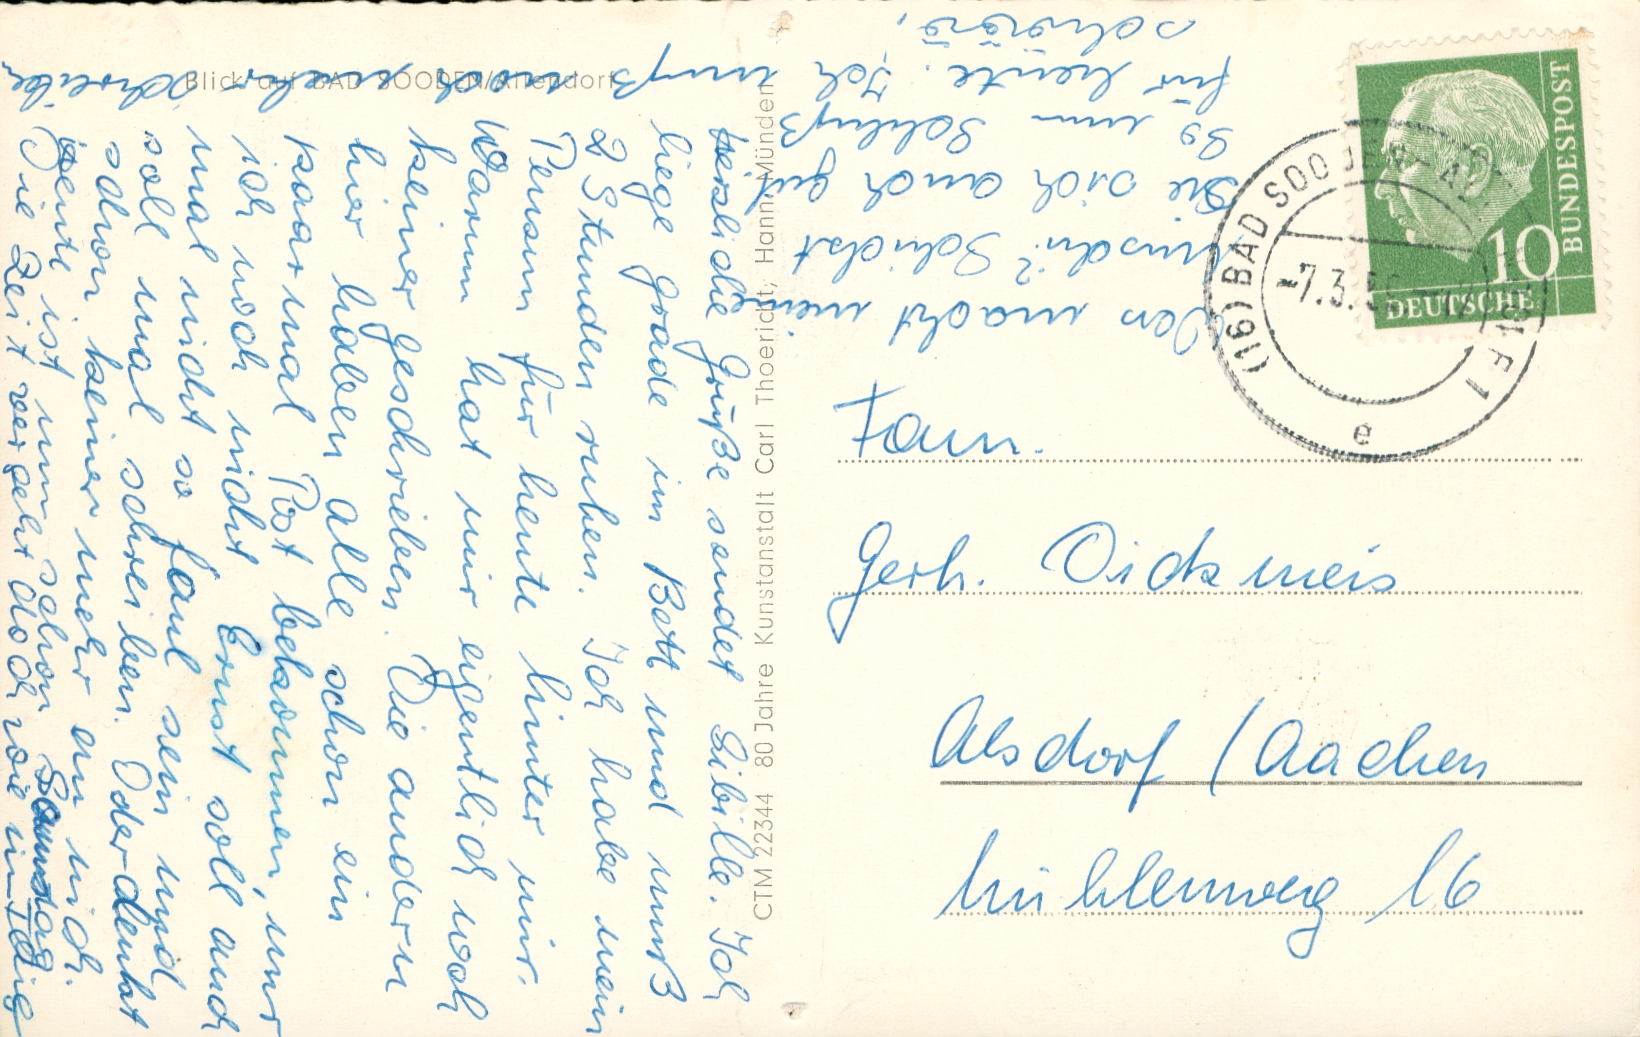 Blick auf BAD SOODEN/Allendorf
CTM 22344 80 Jahre Kunstanstalt Carl Thoericht, Hann. Münden
DEUTSCHE BUNDESPOST
10
(16) BAD SOODEN-ALLENDORF 1
-7.3.
e
Fam.
Gerh. Dickmeis
Alsdorf / Aachen
Mühlenweg 16
Herzliche Grüße sendet Sibille. Ich
liege grade im Bett und muß
2 Stunden ruhen. Ich habe mein
Pensum für heute hinter mir.
Warum hat mir eigentlich noch
keiner geschrieben. Die andern
hier haben alle schon ein
paarmal Post bekommen, nur
ich noch nicht. Ernst soll auch
mal nicht so faul sein und
soll mal schreiben. Oder denkt
schon keiner mehr an mich.
Heute ist nun schon Samstag
Die Zeit vergeht doch wie im Flug
schreiben
muß
Was macht meine
Muschi? Schickt
Sie sich auch gut.
So nun Schluß
für heute. Ich muß
noch mehr